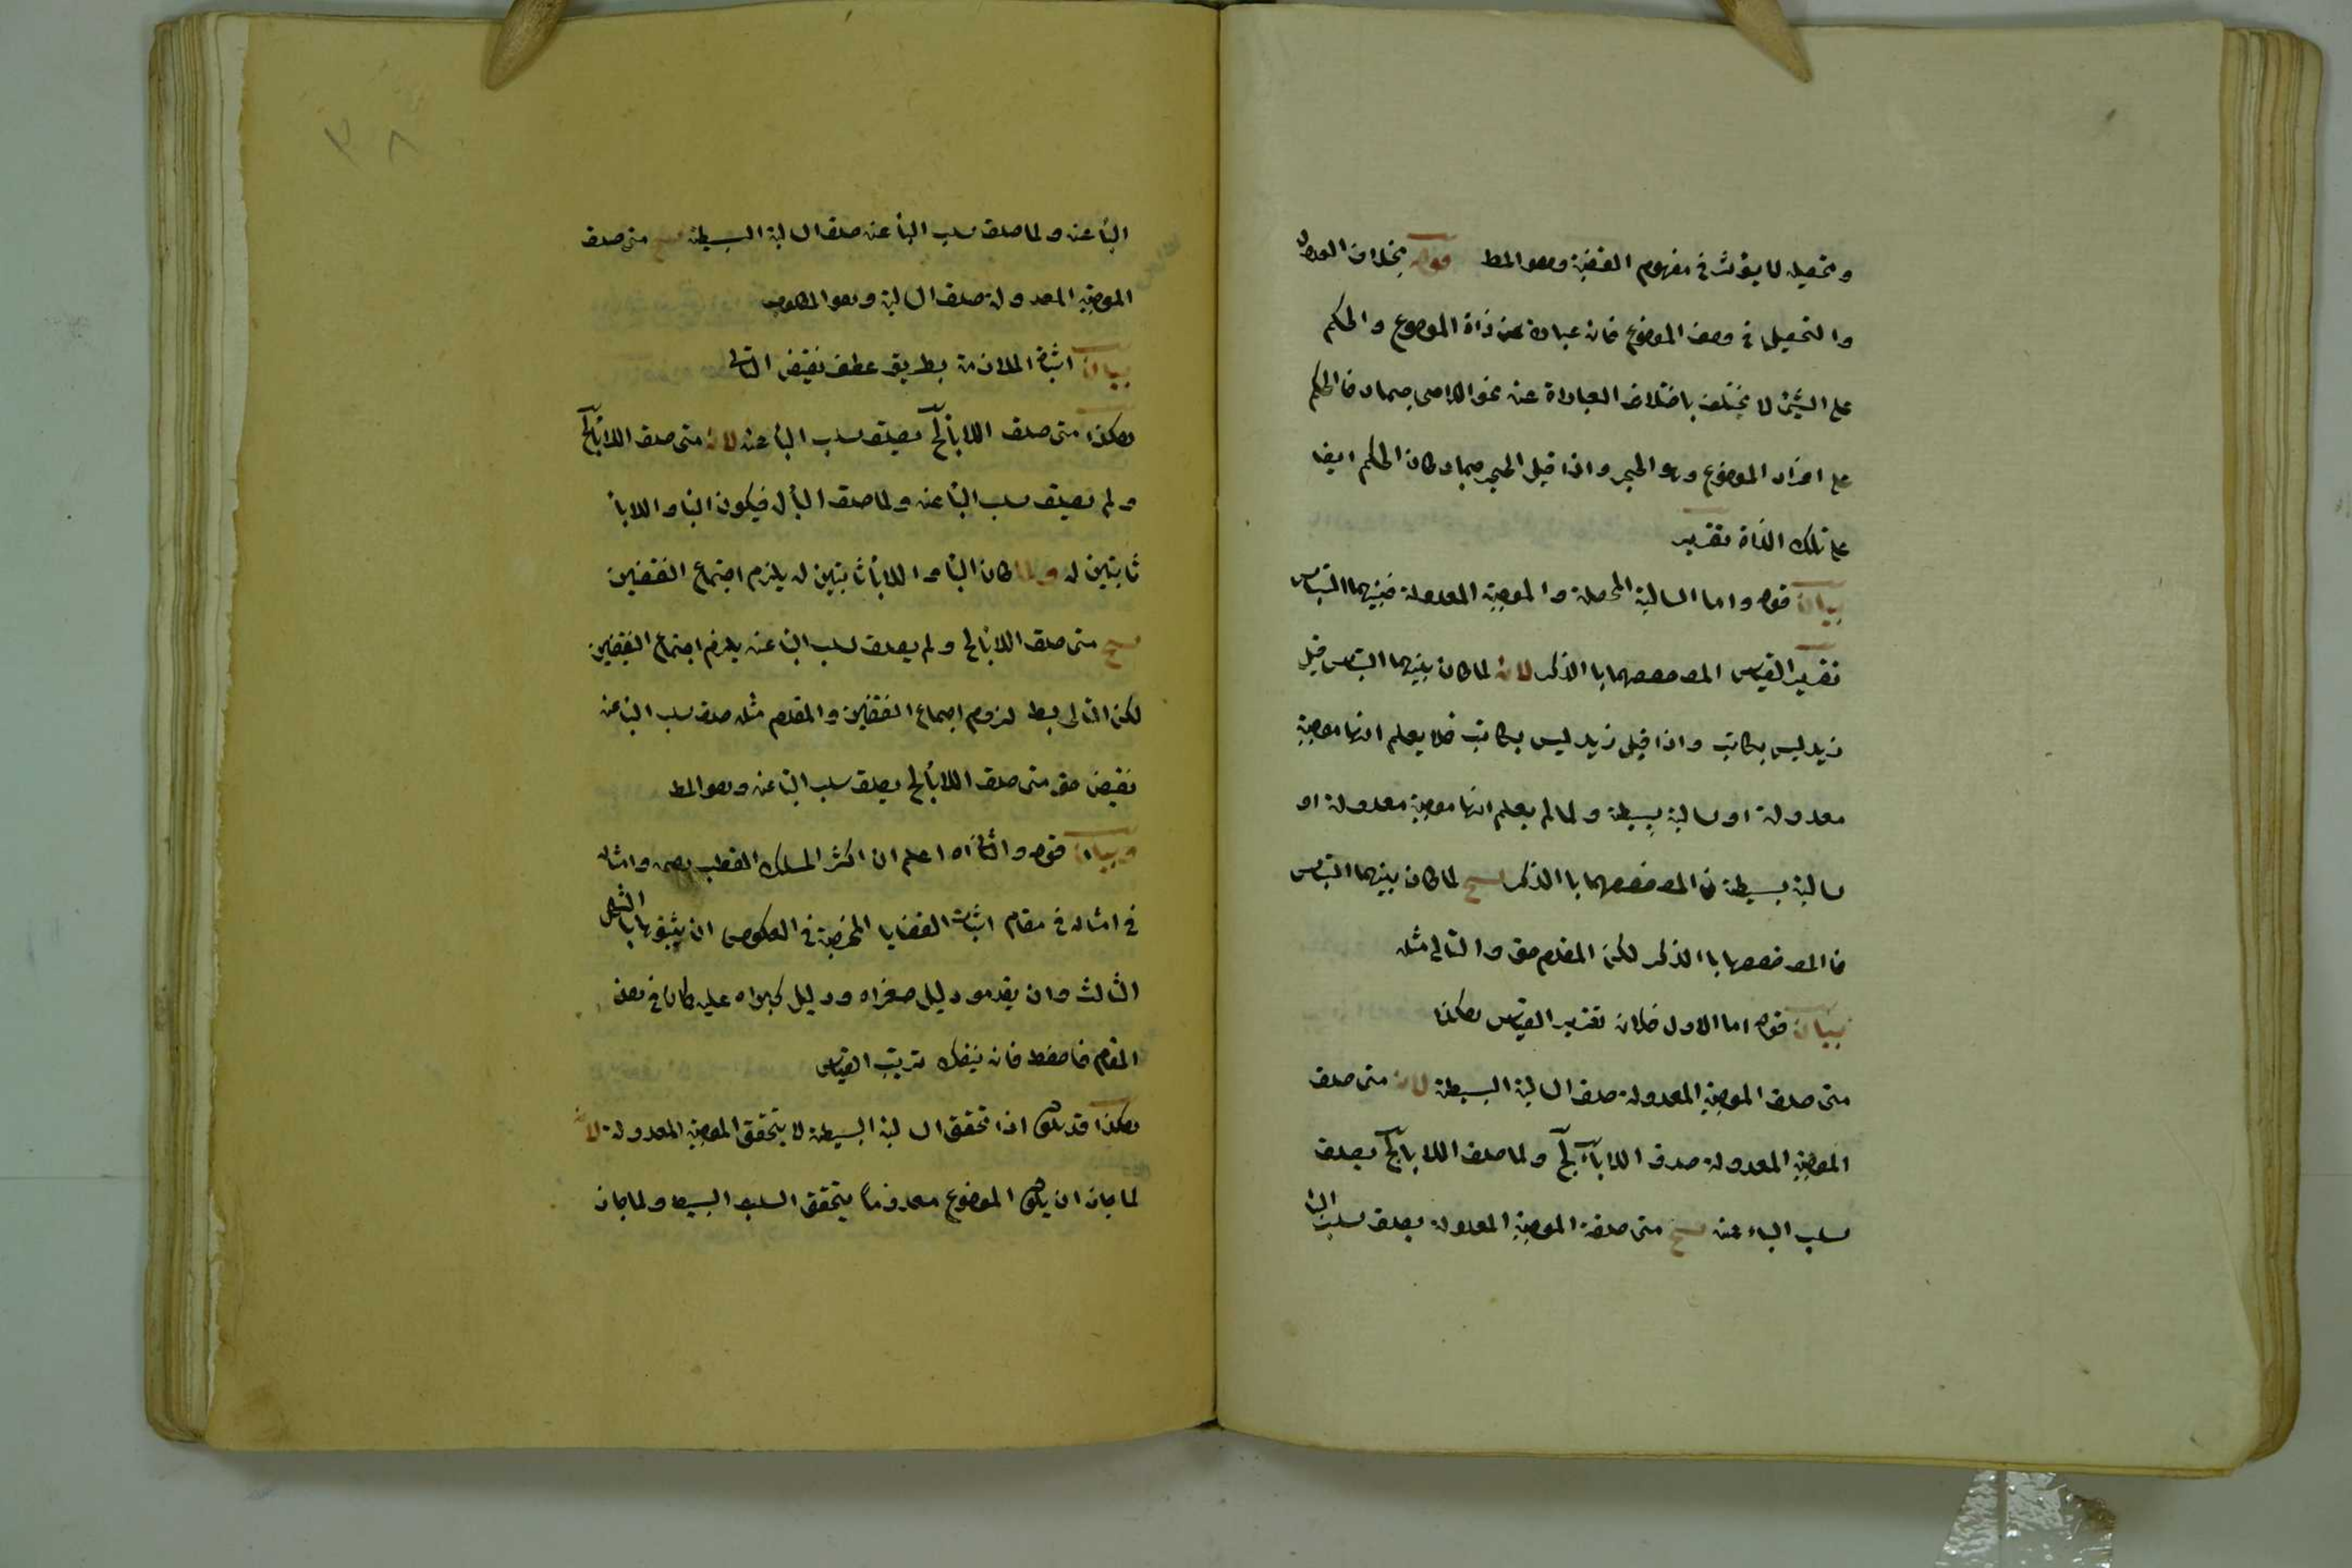 وتحصيله لا يؤثر في مفهوم القضية وهو المط قوله بخلاف العدول
والتحصيل في وصف الموضوع فانه عبارة عن ذاة الموضوع والحكم
على الشيئ لا يختلف باختلاف العباراة عنه نحو اللاحي جماد فالحكم
على افراد الموضوع وهو الحجر واذا قيل الحجر جماد كان الحكم ايضا
على تلك الذاة تقرير
بيان قوله واما السالبة المحصلة والموجبة المعدولة فبينهما التباس
تقرير القياس خصصهما با الذكر لانه لما كان بينهما التباس قيل
زيد ليس بكاتب واذا قيل زيد ليس بكاتب فلا يعلم انها موجبة
معدولة او سالبة بسيطة ولما لم يعلم انها موجبة معدولة او
سالبة بسيطة خصصهما با الذكر ينتج لما كان بينهما التباس
خصصهما با الذكر لكن المقدم حق والتالى مثله
بيان قوله اما الاول فلان تقرير القياس هكذا
متى صدق الموجبة المعدولة صدق السالبة البسيطة لانه متى صدق
الموجبة المعدولة صدق اللاباء لج ولما صدق اللابا لج يصدق
سلب الباء عنه ينتج متى صدقة الموجبة المعدولة يصدق سلب البا
٣٨
البا عنه ولما صدق سلب البا عنه صدق السالبة البسيطة ينتج متى صدق
الموجبة المعدولة صدق السالبة وهو المطلوب
بيان اثباة الملازمة بطريق عطف نقيض التالى
هكذا متى صدق اللابا لج يصدق سلب البا عنه لانه متى صدق اللابا لج
ولم يصدق سلب البا عنه ولما صدق البا له فيكون البا واللابا
ثابتين له ولما كان البا واللابا ثابتين له يلزم اجتماع النقضين
ينتج متى صدق اللابا لج ولم يصدق سلب البا عنه يلزم اجتماع النقيضين
لكن التالى بط لزوم اجتماع النقضين والمقدم مثله صدق سلب البا عنه
نقيض حق متى صدق اللابا لج يصدق سلب البا عنه وهو المط
وبيان قوله والثانى اه اعلم ان اكثر المسلك القطب وامثاله
في امثاله في مقام اثبات القضايا في العكوس ان يثبتوها با الشكل
الثالث وان يقدمو دليل صغراه ودليل كبراه عليه كما في بعض
المقام فاحفظ فانه ينفعك ترتيب القياس
هكذا قد يكون اذا تحقق السالبة البسيطة لا يتحقق الموجبة المعدولة لانه
لما جاز ان يكون الموضوع معدوماً يتحقق السلب البسيط ولما جاز